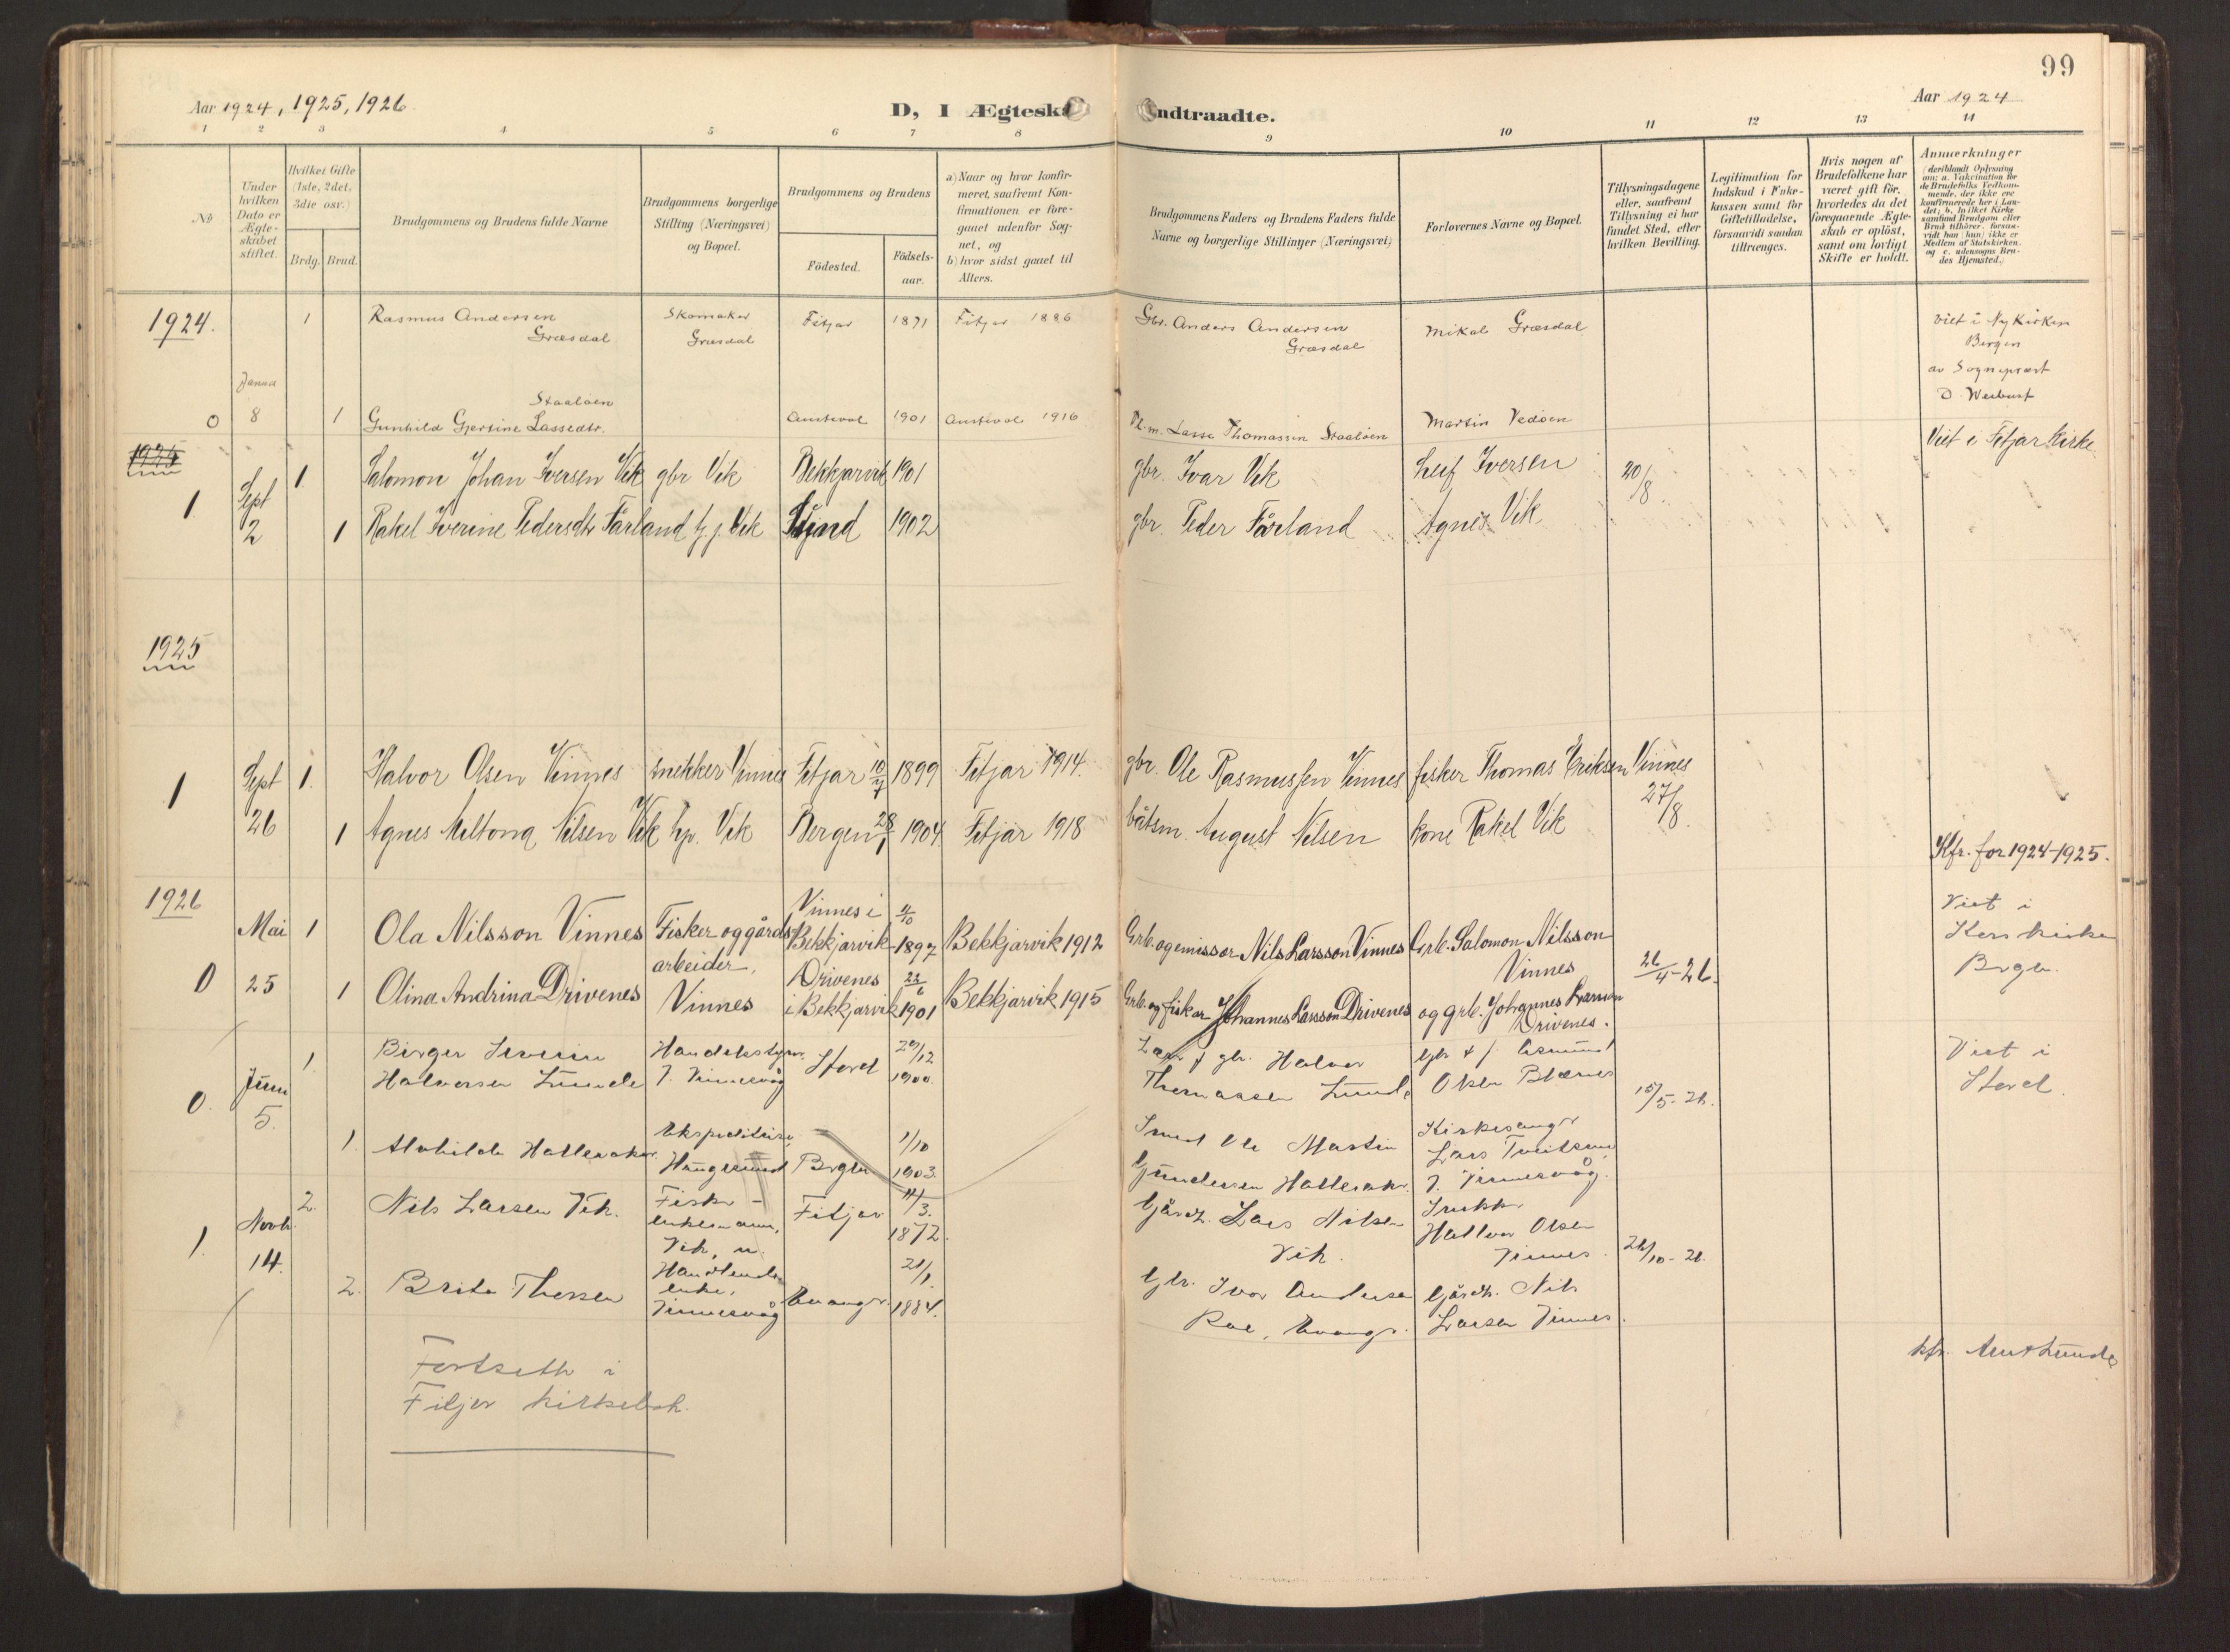 99
Aar 1924, 1925, 1926
D, I Ægteska
ndtraadte.
Aar 1924
1 2 3 4 5 6 7 8 9 10 11 12 13 14
No
Under hvilken Dato er Ægteskabet stiftet.
Hvilket Gifte (1ste, 2det, 3die osv.)
Brdg. Brud.
Brudgommens og Brudens fulde Navne
Brudgommens borgerlige Stilling (Næringsvei) og Bopæl.
Brudgommens og Brudens
Födested.
Födselsaar.
a) Naar og hvor konfirmeret, saafremt Konfirmationen er foregaaet udenfor Sognet, og
b) hvor sidst gaaet til Alters.
Brudgommens Faders og Brudens Faders fulde Navne og borgerlige Stillinger (Næringsvei)
Forlovernes Navne og Bopæl.
Tillysningsdagene eller, saafremt Tillysning ei har fundet Sted, efter hvilken Bevilling.
Legitimation for Indskud i Enkekassen samt for Giftetilladelse, forsaavidt saadan tiltrænges.
Hvis nogen af Brudefolkene har været gift för, hvorledes da det foregaaende Ægteskab er oplöst, samt om lovligt Skifte er holdt.
Anmærkninger
(deriblandt Oplysning om: a. Vakcination for de Brudefolks Vedkommende, der ikke ere konfirmerede her i Landet; b. hvilket Kirkesamfund Brudgom eller Brud tilhörer, forsaavidt han (hun) ikke er Medlem af Statskirken, og c. udensogns Brudes Hjemsted.)
1924.
1 Rasmus Andersen Græsdal Skomaker Græsdal Fitjar 1871 Fitjar 1886 Gbr. Anders Andersen Græsdal Mikal Græsdal
Viet i Nykirken
Bergen
av Sogneprest
D. Weibust
0 Januar 8 1 Gunhild Gjertine Lassedtr. Staaløen Austevol 1901 Austevol 1916 Pl.m. Lasse Thomassen Staaløen Martin Vedøen
1925
Viet i Fitjar kirke
1 Sept 2
1 Salomon Johan Iversen Vik gbr Vik Bekkjarvik 1901 gbr. Ivar Vik Leif Iversen 20/8
1 Rakel Iverine Pedersdtr Færland h.j. Vik 1902 gbr. Peder Færland Agnes Vik
1925
1 Sept 26
1. Halvor Olsen Vinnes snekker Vinnes Fitjar 10/7 1899 Fitjar 1914. gbr. Ole Rasmussen Vinnes fisker Thomas Eriksen Vinnes
27/8
1 Agnes Miltona Nilsen Vik hp. Vik Bergen 28/1 1904 Fitjar 1918 båtsm. August Nilsen kone Rakel Vik
Kfr. for 1924-1925.
1926
0 Mai 25
1 Ola Nilsson Vinnes Fisker og gårdsarbeider, Vinnes Vinnes i Bekkjarvik 1897 Bekkjarvik 1912 Grb. og emissær Nils Larsson Vinnes Grb. Salomon Nilsson Vinnes 26/4-26.
1 Olina Andrina Drivenes Drivenes i Bekkjarvik 23/6 1901 Bekkjarvik 1915 Grb. og fisker Johannes Larsson Drivenes og grb. Johannes Larsson Drivenes.
Viet i
Korskirken
Brgn.
0. Juni 5.
1. Birger Severin Halvorsen Lunde Handelsstyrer, Vinnesvåg Stord 29/12 1900. gbr. Halvor Thomassen Lunde Olsen 15/5-26.
Viet i
Stord.
1. Mathilde Hatleraker. Ekspeditrise, Haugesund Brgn 1/10 1903. Smed Ole Martin Gundersen Hatleraker. Kirkesanger Lars Tveitsme, Vinnesvåg.
1. Novb. 14.
2. Nils Larsen Vik. Fisker - enkemann, Vik, u. Fitjar 11/3. 1872. Gårdb. Lars Nilsen Vik. Snekker Halvor Olsen Vinnes. 26/10-26.
2. Brita Thorsen Handlende, enke, Vinnesvåg Evanger. 21/1. 1884. Gbr. Ivar Andersen Rae, Evanger. Gårdb. Nils Larsen Vinnes.
kfr. Arnt Lunde
Fortsetth i
Fitjar kirkebok.